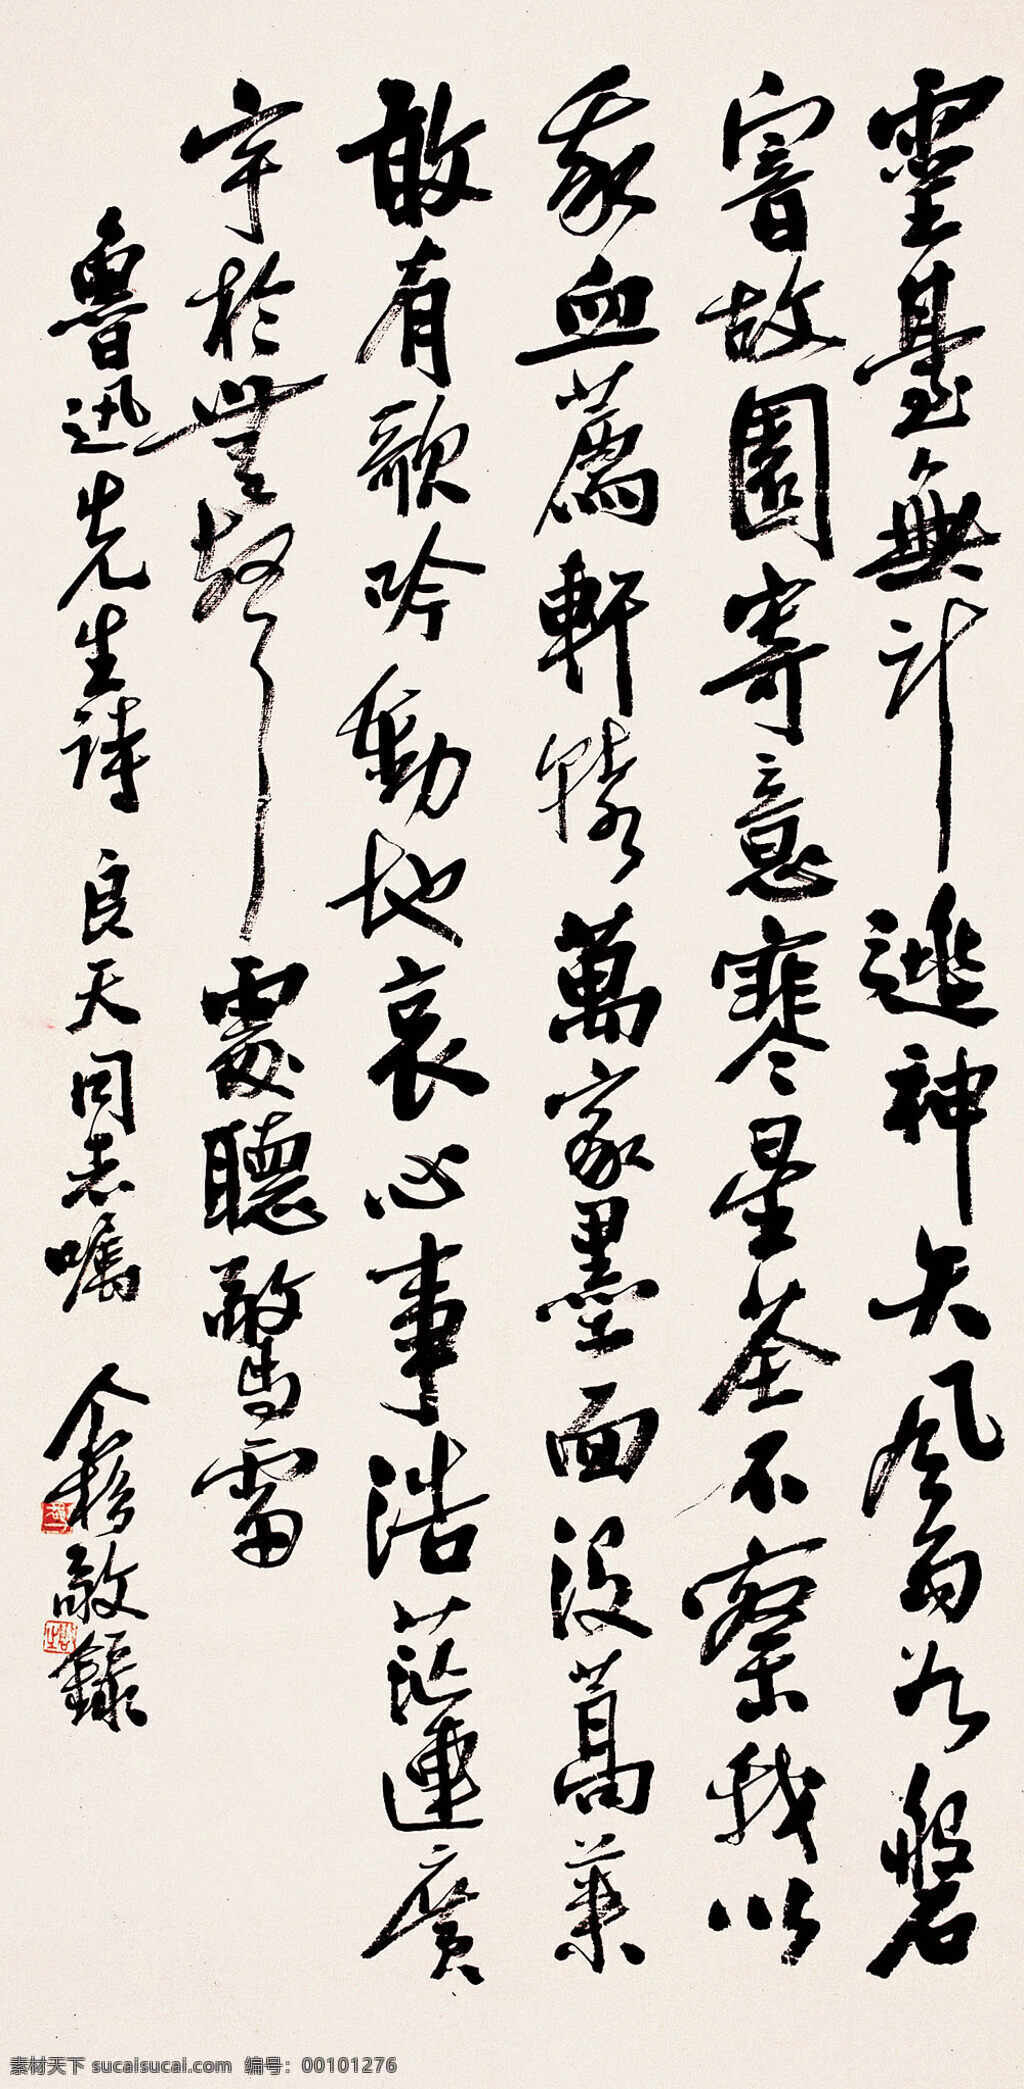 靈臺無計逃神矢風雨如磐
闇故園寄意寒星荃不察我以
我血薦軒轅萬家墨面沒蒿萊
敢有歌吟動地哀心事浩茫連廣
宇於無聲處聽驚雷
魯迅先生詩 良天同志嘱 敬錄
素材天下 sucaisucai.com 编号：00101276